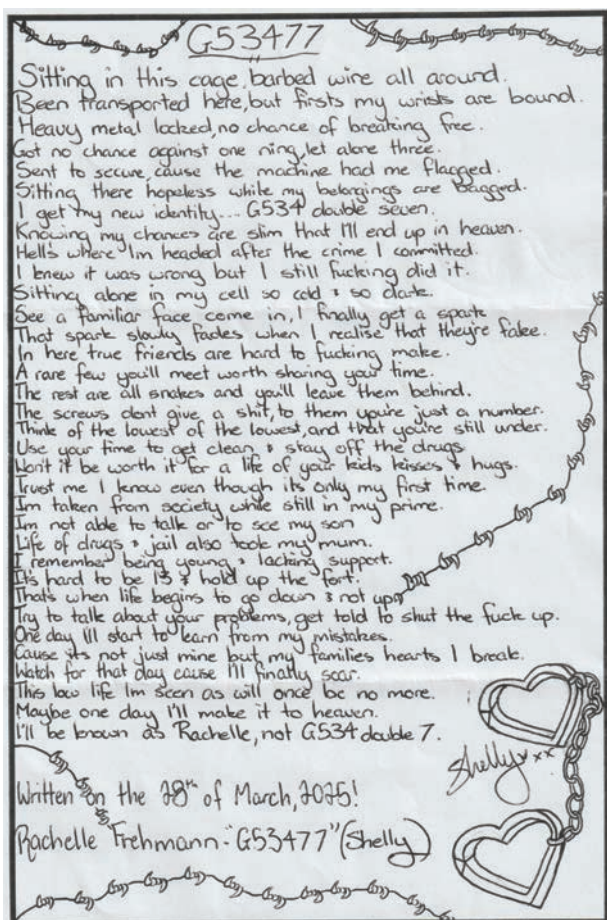 G53477
Sitting in this cage, barbed wire all around.
Been transported here, but firsts my wrists are bound.
Heavy metal locked, no chance of breaking free.
Got no chance against one ning, let alone three.
Sent to secure, cause the machine had me flagged.
Sitting there hopeless while my belongings are bagged.
I get my new identity... G534 double seven.
Knowing my chances are slim that I'll end up in heaven.
Hell's where Im headed after the crime I committed.
I knew it was wrong but I still fucking did it.
Sitting alone in my cell so cold & so dark.
See a familiar face come in, I finally get a spark
That spark slowly fades when I realise that they're fake.
In here true friends are hard to fucking make.
A rare few you'll meet worth sharing your time.
The rest are all snakes and you'll leave them behind.
The screws dont give a shit, to them you're just a number.
Think of the lowest of the lowest, and that you're still under.
Use your time to get clean & stay off the drugs.
Won't it be worth it for a life of your kids kisses & hugs.
Trust me I know even though its only my first time.
Im taken from society while still in my prime.
Im not able to talk or to see my son
Life of drugs & jail also took my mum.
I remember being young & lacking support.
It's hard to be 13 & hold up the fort.
Thats when life begins to go down & not up
Try to talk about your problems, get told to shut the fuck up.
One day I'll start to learn from my mistakes.
Cause its not just mine but my families hearts I break.
Watch for that day cause I'll finally soar.
This low life Im seen as will once be no more.
Maybe one day I'll make it to heaven.
I'll be known as Rachelle, not G534 double 7.
Shelly xxx
Written on the 28th of March, 2025!
Rachelle Frehmann "G53477" (Shelly)